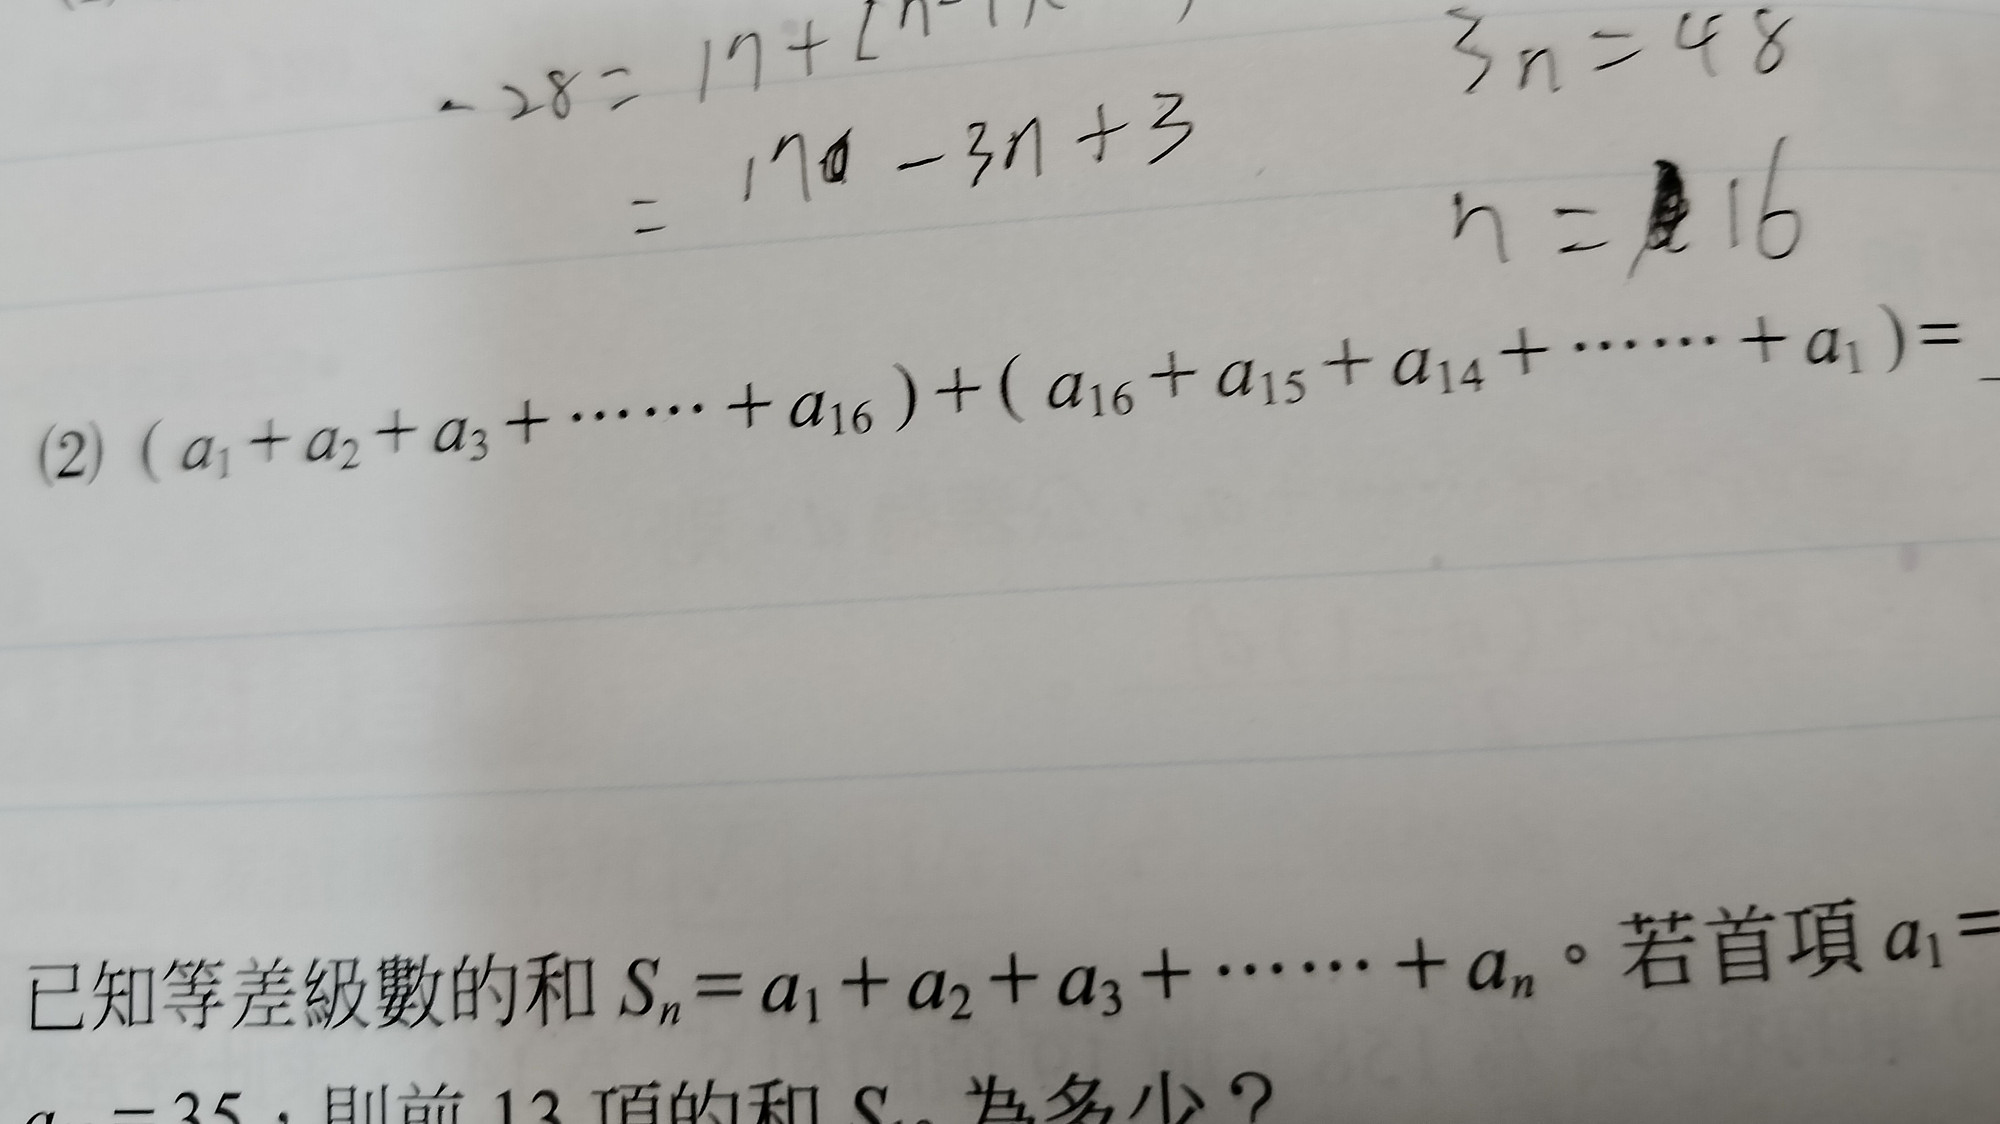 -28 = 17 + [n-1)
3n = 48
= 17 - 3n + 3
n = 16
(2) ( a₁ + a₂ + a₃ + …… + a₁₆ ) + ( a₁₆ + a₁₅ + a₁₄ + …… + a₁ ) =
已知等差級數的和 Sₙ = a₁ + a₂ + a₃ + …… + aₙ。若首項 a₁ =
= 35,則前 13 項的和 S 為多少?